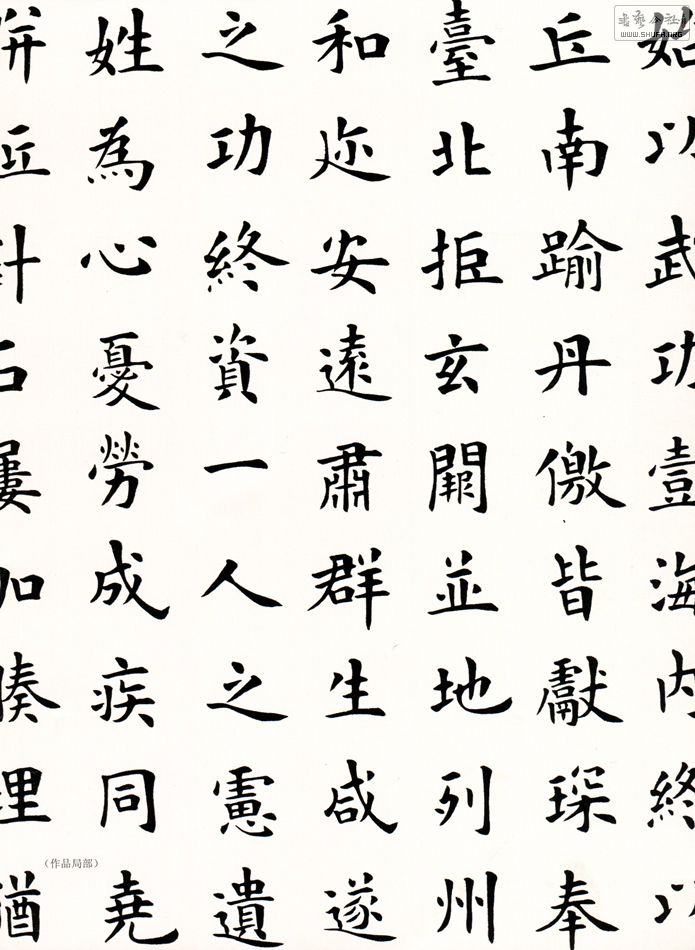 始以武功壹海内終以
丘南踰丹儌皆獻琛奉
臺北拒玄闕並地列州
和迩安遠肅群生咸遂
之功終資一人之慮遺
姓為心憂勞成疾同堯
胼胝針石屢加腠理猶
（作品局部）
书艺公社
WWW.SHUFA.ORG